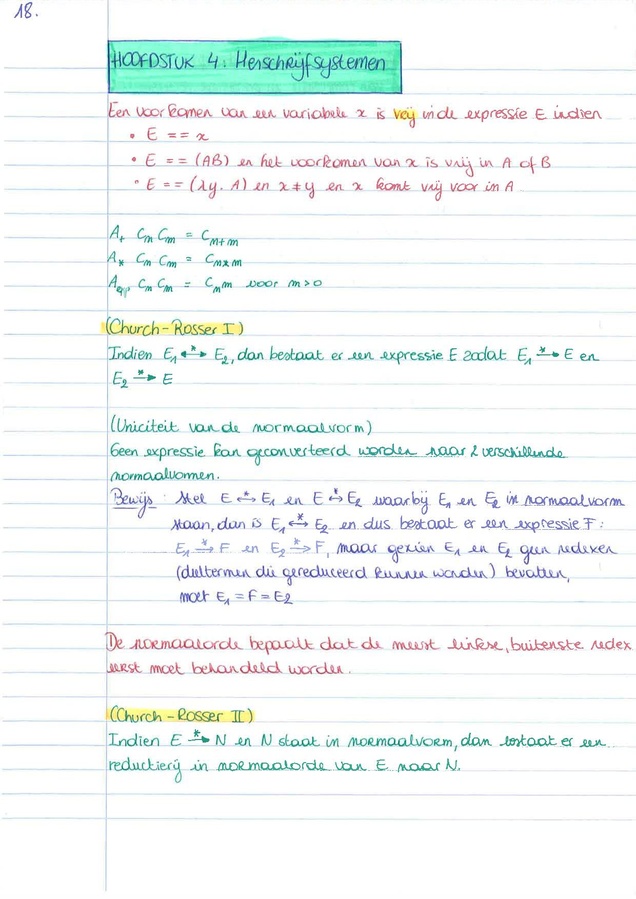 18.
HOOFDSTUK 4: Herschrijfsystemen
Een voorkomen van een variabele x is vrij in de expressie E indien
• E == x
• E == (AB) en het voorkomen van x is vrij in A of B
• E == (λy. A) en x ≠ y en x komt vrij voor in A
A₊ Cₙ Cₘ = Cₙ₊ₘ
Aₓ Cₙ Cₘ = Cₙₓₘ
A_exp Cₙ Cₘ = C_n^m voor m>0
(Church-Rosser I)
Indien E₁ <-*-> E₂, dan bestaat er een expressie E zodat E₁ -*-> E en
E₂ -*-> E
(Uniciteit van de normaalvorm)
Geen expressie kan geconverteerd worden naar 2 verschillende
normaalvormen.
Bewijs: Stel E <-*-> E₁ en E <-*-> E₂ waarbij E₁ en E₂ in normaalvorm
staan, dan is E₁ <-*-> E₂ en dus bestaat er een expressie F:
E₁ -*-> F en E₂ -*-> F, maar gezien E₁ en E₂ geen redexen
(deeltermen die gereduceerd kunnen worden) bevatten,
moet E₁ = F = E₂
De normaalorde bepaalt dat de meest linkse, buitenste redex
eerst moet behandeld worden.
(Church-Rosser II)
Indien E -*-> N en N staat in normaalvorm, dan bestaat er een
reductierij in normaalorde van E naar N.